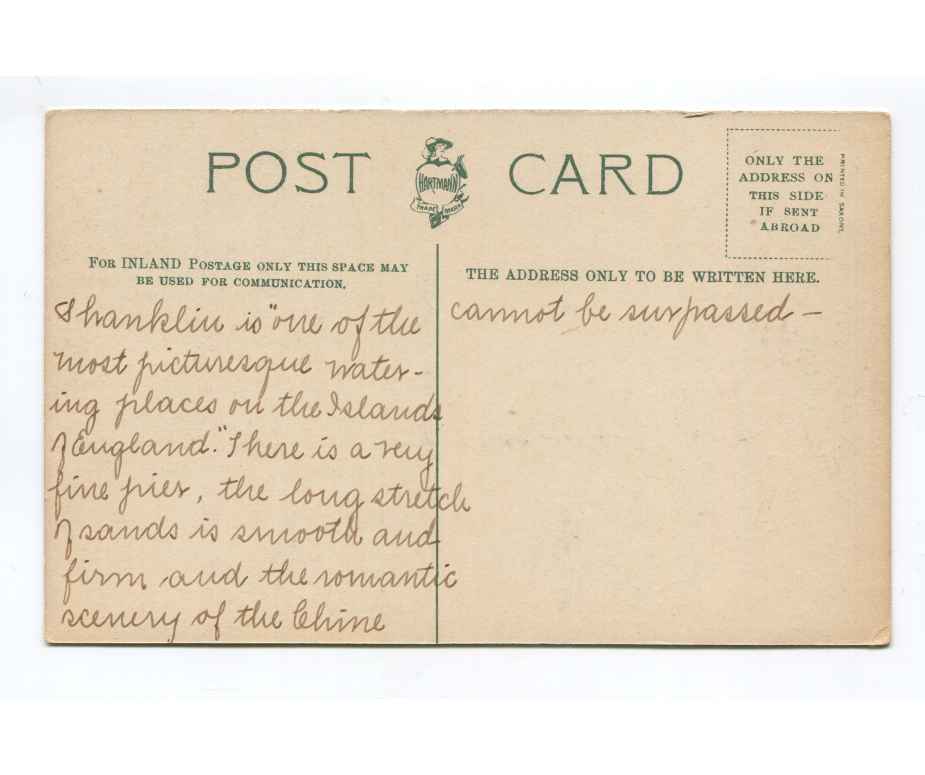 POST CARD
HARTMANN
TRADE MARK
ONLY THE
ADDRESS ON
THIS SIDE
IF SENT
ABROAD
PRINTED IN SAXONY.
FOR INLAND POSTAGE ONLY THIS SPACE MAY
BE USED FOR COMMUNICATION.
THE ADDRESS ONLY TO BE WRITTEN HERE.
Shanklin is "one of the
most picturesque water-
ing places on the Islands
of England." There is a very
fine pier, the long stretch
of sands is smooth and
firm and the romantic
scenery of the Chine
cannot be surpassed –